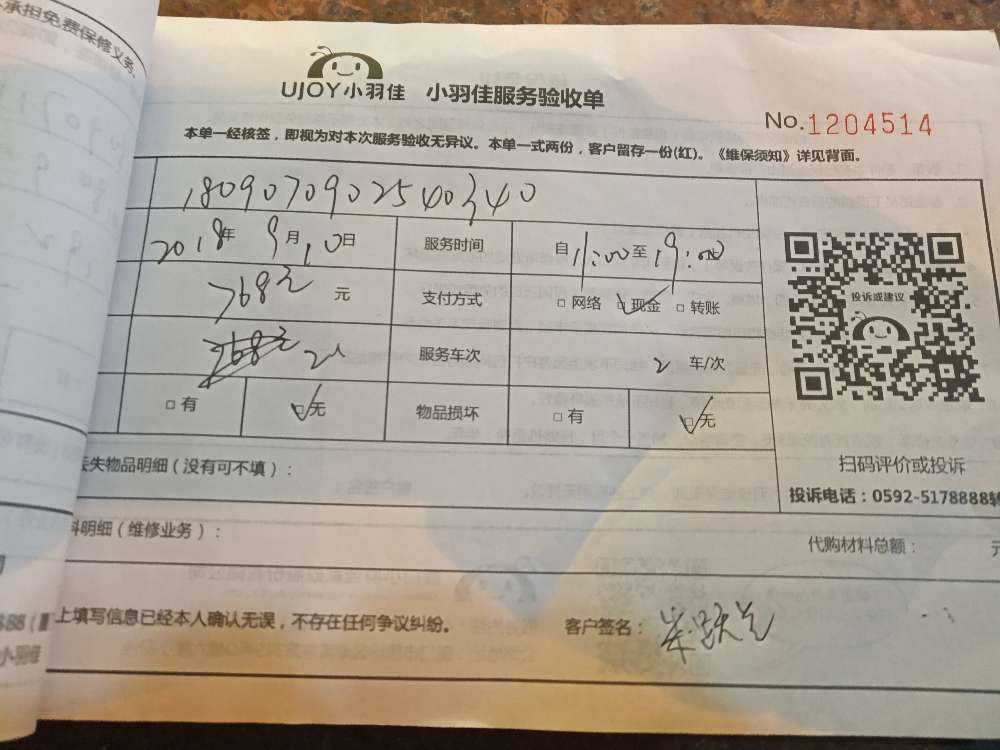 承担免费保修义务.
UJOY小羽佳 小羽佳服务验收单
No.1204514
本单一经核签，即视为对本次服务验收无异议。本单一式两份，客户留存一份(红)。《维保须知》详见背面。
180907090254034​0
2018年 9月10日 服务时间 自11:00至19:00
768元 元 支付方式 □ 网络 □ 现金 □ 转账
2人 服务车次 2 车/次
□ 有 □ 无 物品损坏 □ 有 □ 无
投诉或建议
扫码评价或投诉
投诉电话：0592-5178888转
丢失物品明细（没有可不填）：
料明细（维修业务）：
代购材料总额： 元
上填写信息已经本人确认无误，不存在任何争议纠纷。 客户签名：
小羽佳